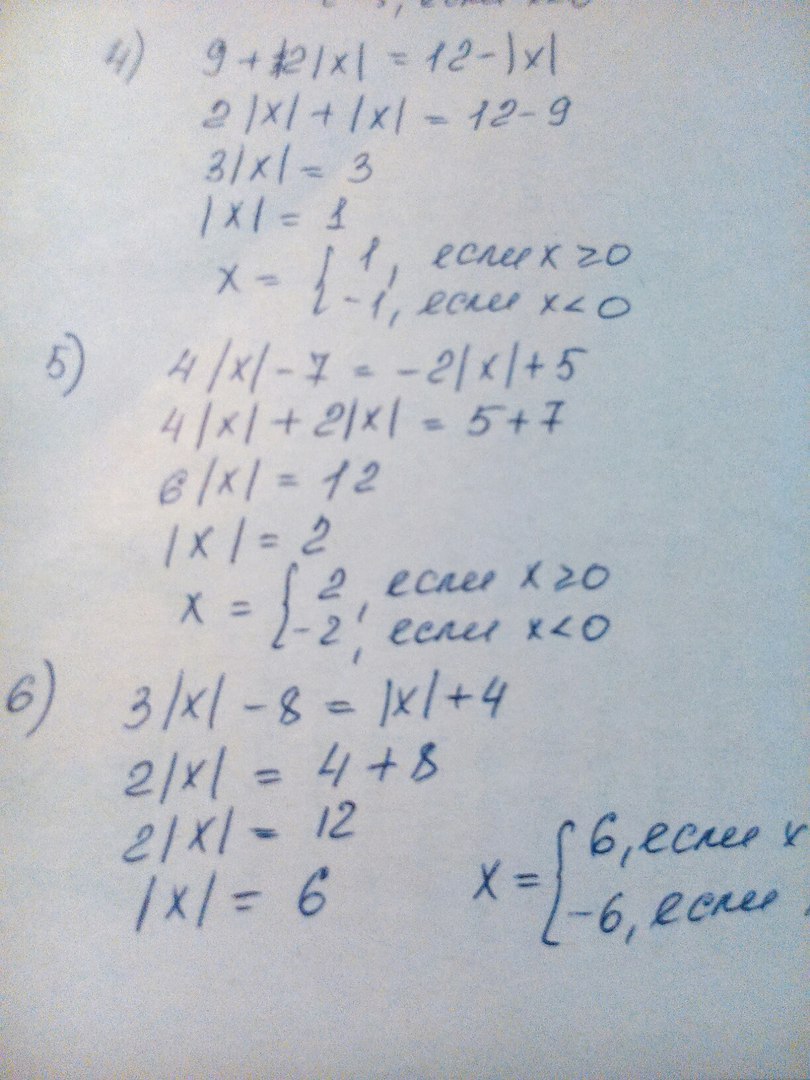 4) 9 + 2|x| = 12 - |x|
2|x| + |x| = 12 - 9
3|x| = 3
|x| = 1
x = { 1, если x ≥ 0
-1, если x < 0
5) 4|x| - 7 = -2|x| + 5
4|x| + 2|x| = 5 + 7
6|x| = 12
|x| = 2
x = { 2, если x ≥ 0
-2, если x < 0
6) 3|x| - 8 = |x| + 4
2|x| = 4 + 8
2|x| = 12
|x| = 6
x = { 6, если x
-6, если